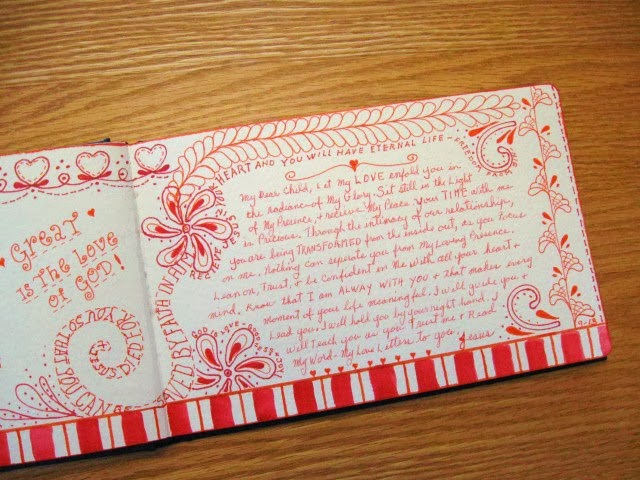 Great
is The Love
of GOD!
JESUS DIED ON THE CROSS FOR YOU SO THAT YOU CAN BE SAVED BY FAITH IN HIM
RECEIVE JESUS IN YOUR HEART AND YOU WILL HAVE ETERNAL LIFE -
My Dear Child, Let My LOVE enfold you in
the radiance of My Glory. Sit still in the Light
of My Presence, + receive My Peace. Your TIME with me
is Precious. Through the intimacy of our relationship,
you are being TRANSFORMED from the inside out, as you Focus
on me. Nothing can seperate you from My Loving Presence.
Lean on, Trust, + be Confident in Me with all your heart +
mind. Know that I am ALWAY WITH YOU + that makes every
moment of your life meaningful. I will guide you +
Lead you. I will hold you by your right hand. I
will Teach you as you Trust me + Read
My Word - My Love Letters to you. Jesus
GOD IS LOVE